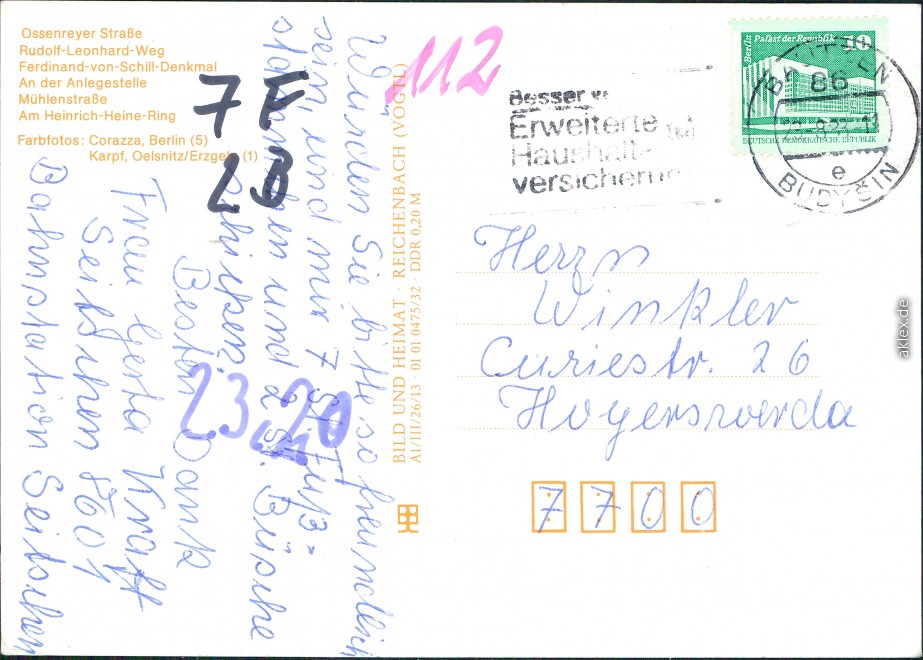 Ossenreyer Straße
Rudolf-Leonhard-Weg
Ferdinand-von-Schill-Denkmal
An der Anlegestelle
Mühlenstraße
Am Heinrich-Heine-Ring
Farbfotos: Corazza, Berlin (5)
Karpf, Oelsnitz/Erzgeb. (1)
7 F
2 B
112
Würden Sie bitte so freundlich
sein und mir 7 St. Fuß=
und 2 St. Büsche
schicken.
Besten Dank
Frau Gerta Kraft
Seitschen 8601
Bahnstation Seitschen
23,20
BILD UND HEIMAT · REICHENBACH (VOGTL)
A1/III/26/13 01 01 0475/32 · DDR 0,20 M
Besser
Erweiterte
Haushalt-
versicherung
Berlin Palast der Republik 10
DEUTSCHE DEMOKRATISCHE REPUBLIK
BAUTZEN
86
e
BUDYŠIN
Herrn
Winkler
Curiestr. 26
Hoyerswerda
7700
aklex.de